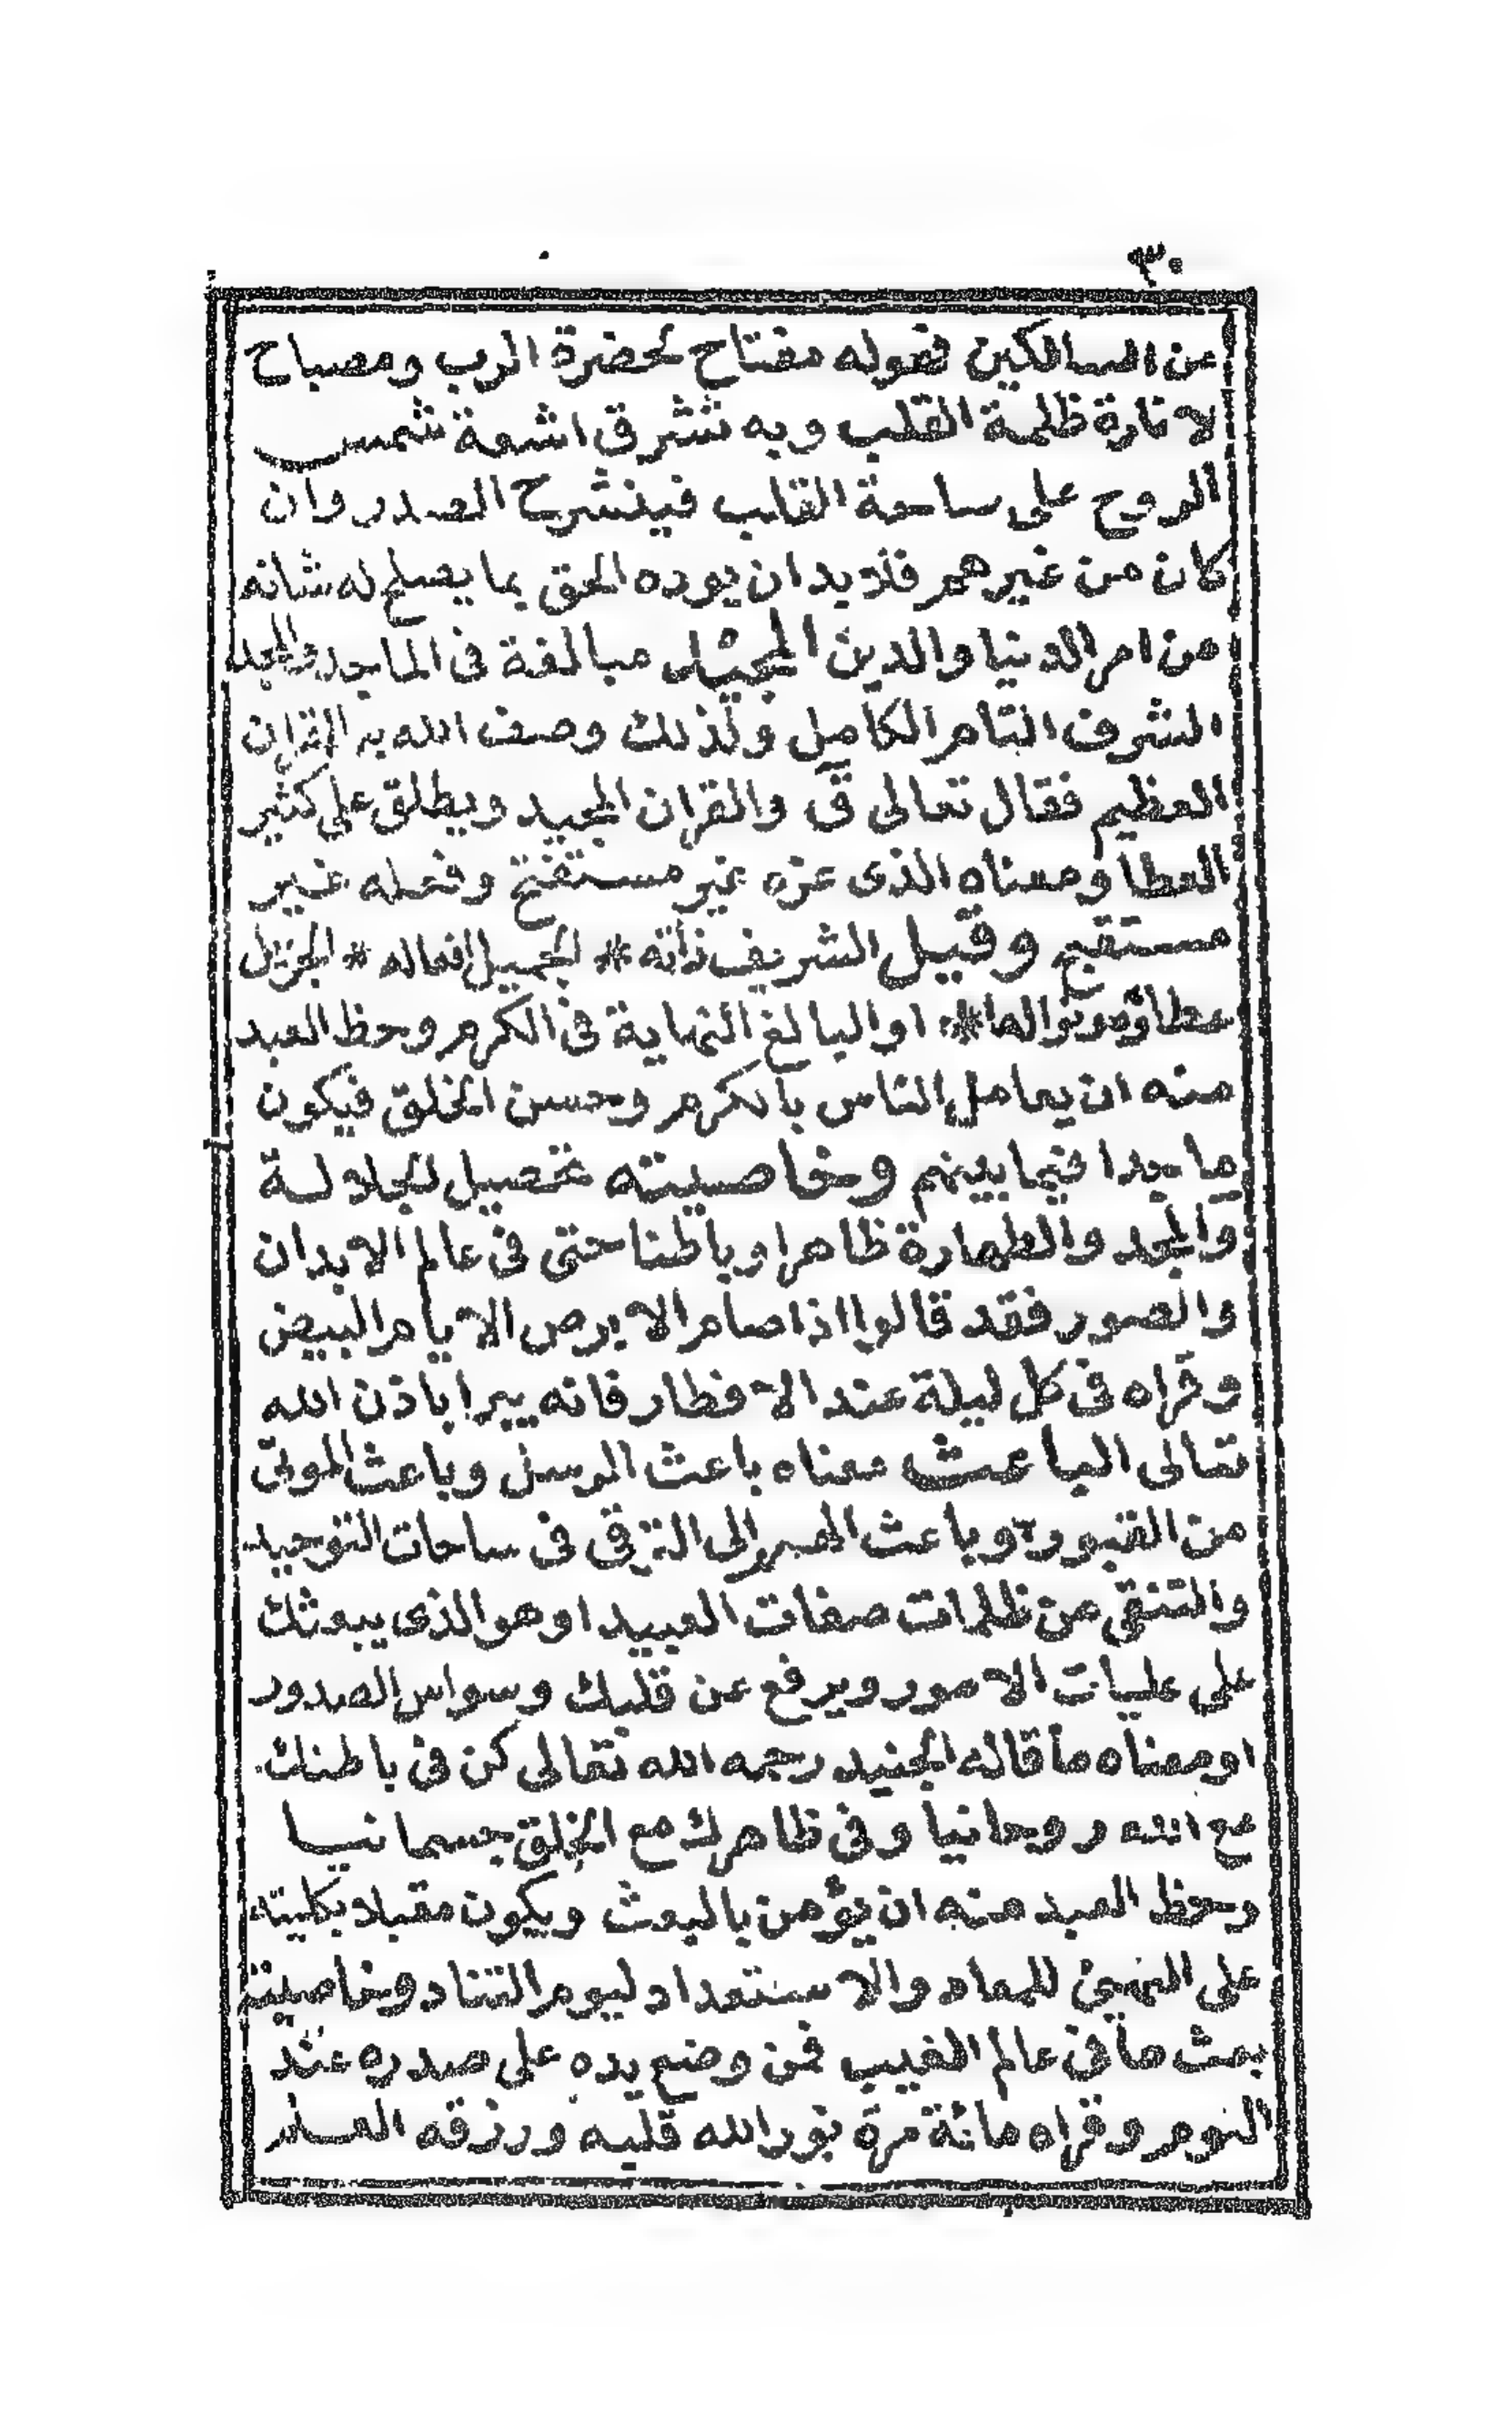 ٣٠
من السالكين فقوله مفتاح لحضرة الرب ومصباح
لانارة ظلمة القلب وبه تشرق اشعة شمس
الروح على ساحة القلب فينشرح الصدر وان
كان من غيرهم فلا بد ان يوده الحق بما يصلح له شانه
من امر الدنيا والدين المجيد مبالغة فى الماجد والمجد
الشرف التام الكامل ولذلك وصف الله به القران
العظيم فقال تعالى ق والقران المجيد ويطلق على كثير
العطا ومعناه الذى عزه غير مستفتح وفعله غير
مستقبح وقيل الشريف ذاته * الجميل افعاله * الجزيل
عطاؤه ونواله * او البالغ النهاية فى الكرم وحظ العبد
منه ان يعامل الناس بالكرم وحسن الخلق فيكون
ماجدا فيما بينهم وخاصيته تحصيل الجلالة
والمجد والطهارة ظاهرا وباطنا حتى فى عالم الابدان
والصور فقد قالوا اذا صام الابرص الايام البيض
وقراه فى كل ليلة عند الافطار فانه يبرا باذن الله
تعالى الباعث معناه باعث الرسل وباعث الموتى
من القبور وباعث الهمم الى الترقى فى ساحات التوحيد
والتنقى من ظلمات صفات العبيد او هو الذى يبعثك
على عليات الامور ويرفع عن قلبك وسواس الصدور
او معناه ما قاله الجنيد رحمه الله تعالى كن فى باطنك
مع الله روحانيا وفى ظاهرك مع الخلق جسمانيا
وحظ العبد منه ان يؤمن بالبعث ويكون مقبلا بكليته
على التهيئ للمعاد والاستعداد ليوم التناد وخاصيته
بعث ما فى عالم الغيب فمن وضع يده على صدره عند
النوم وقراه مائة مرة نور الله قلبه ورزقه العلم